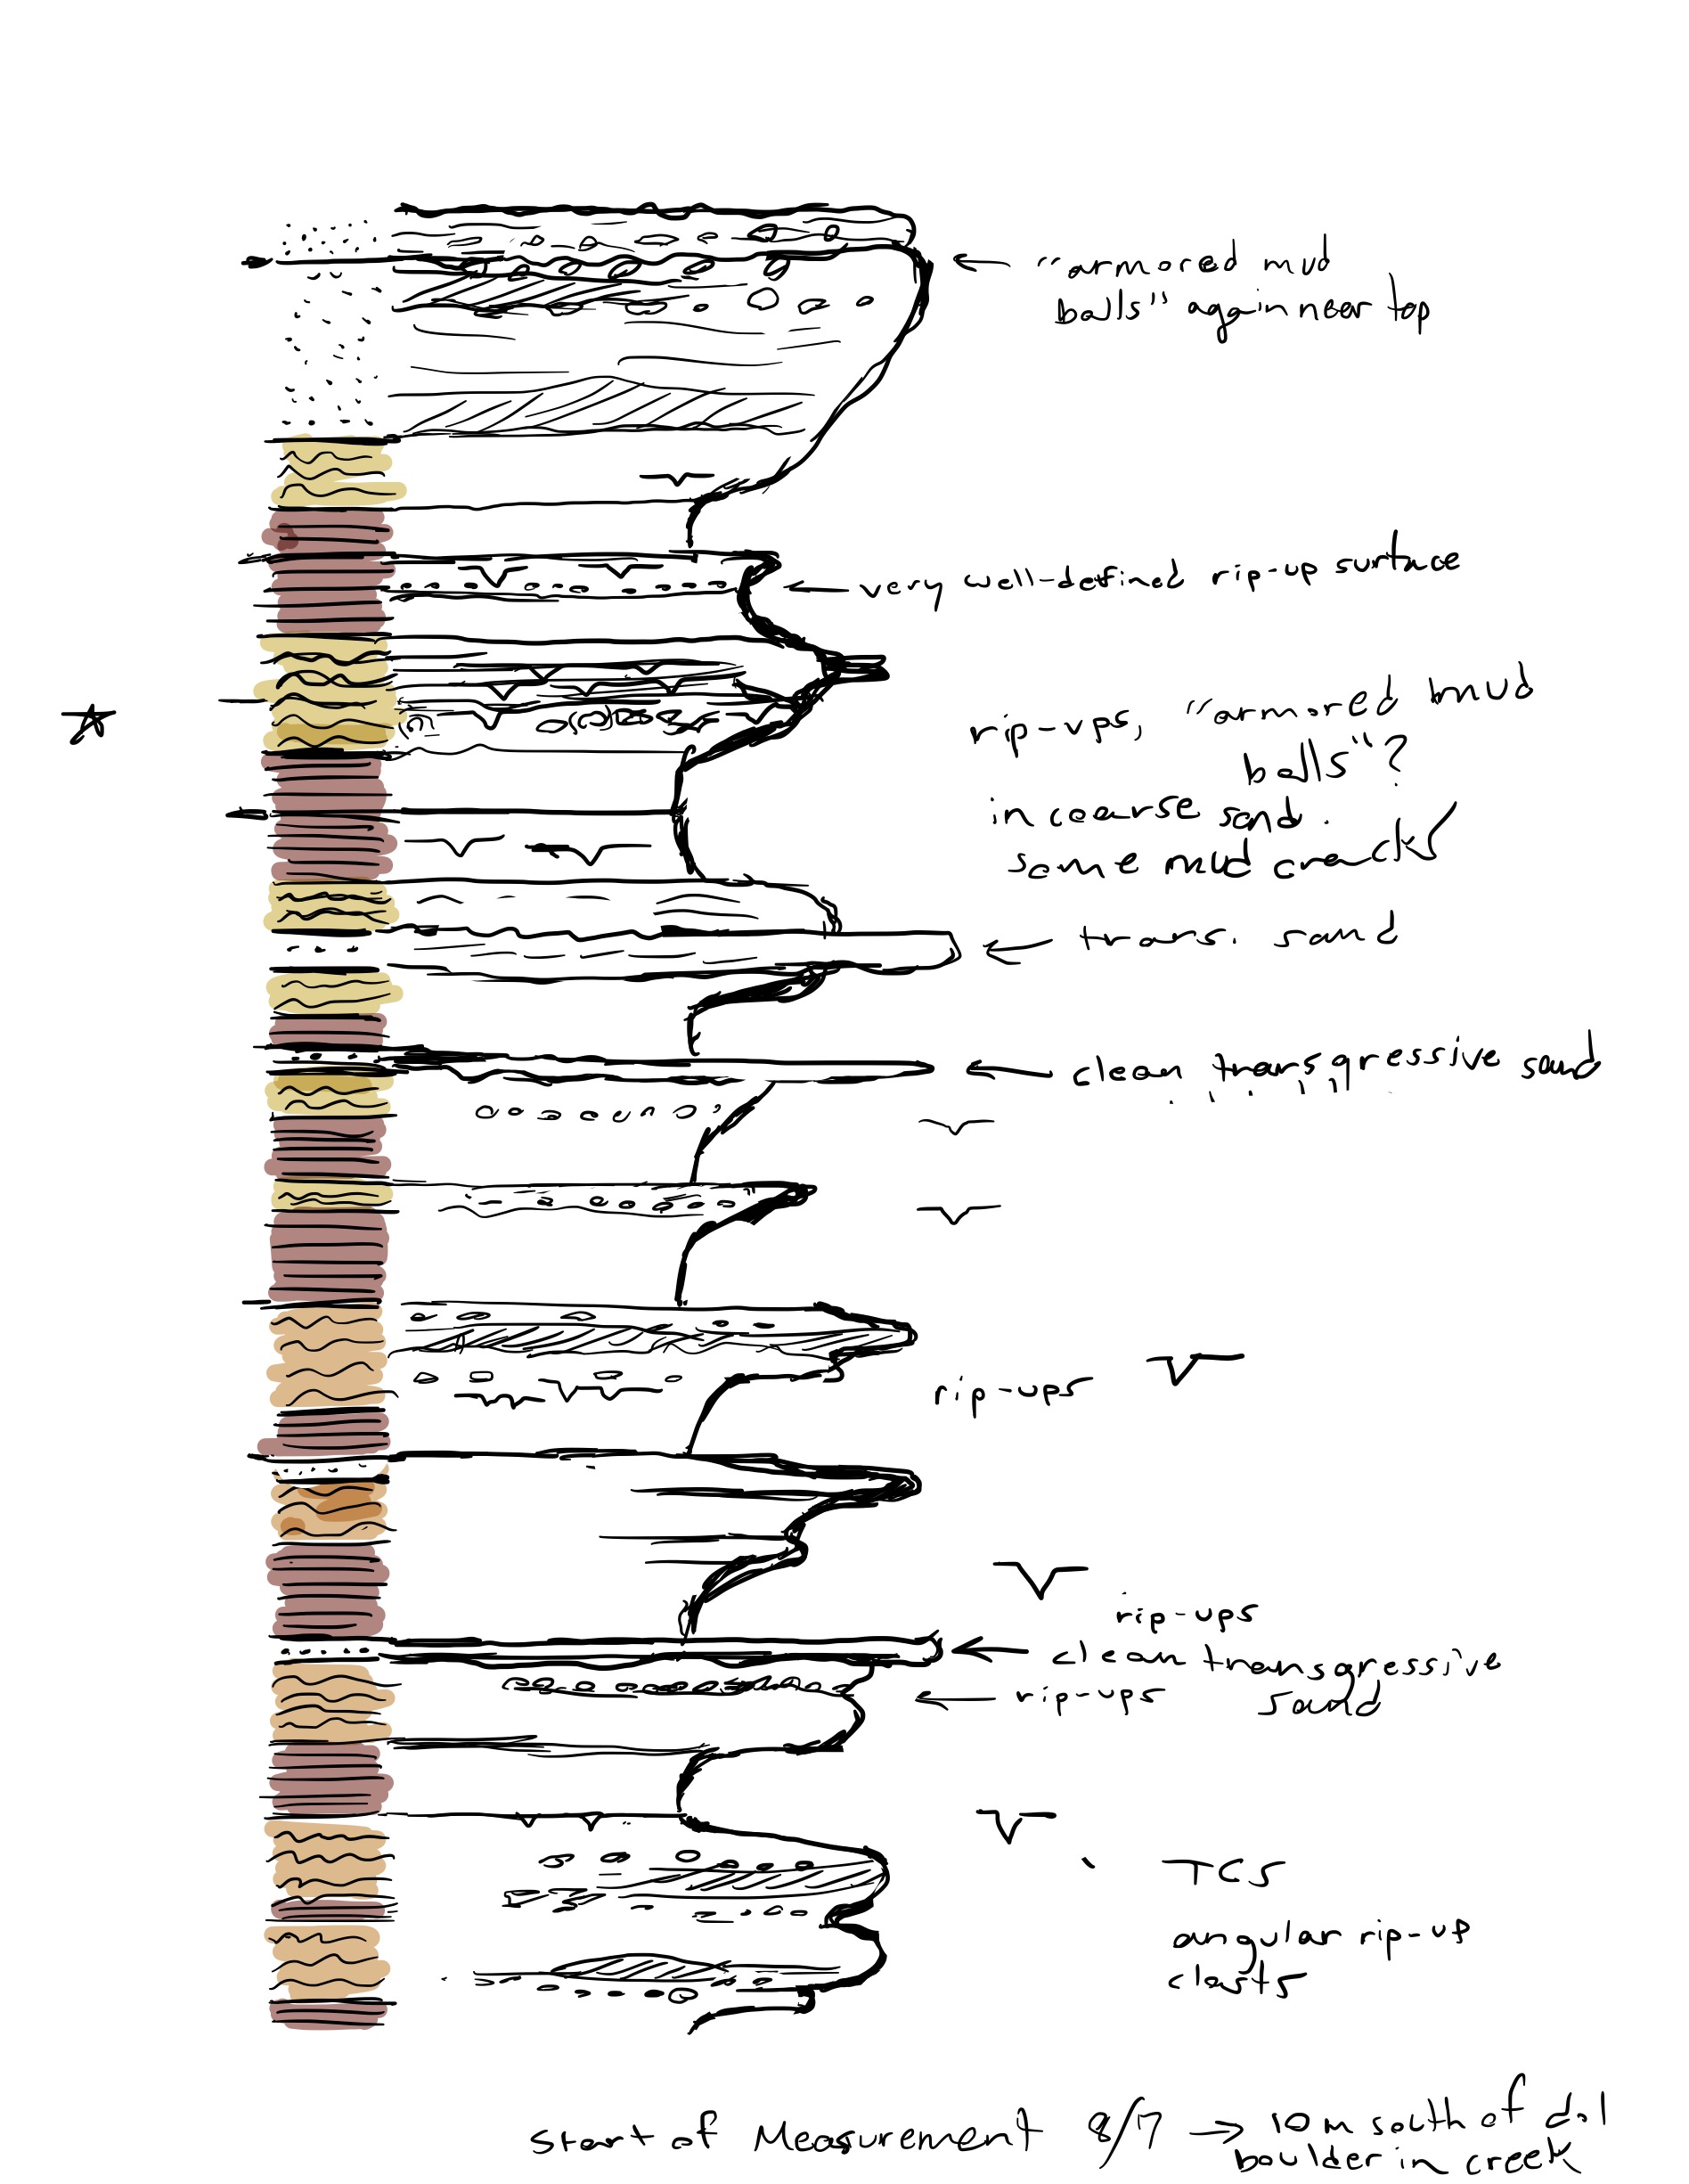 "armored mud
balls" again near top
very well-defined rip-up surface
rip-ups, "armored mud
balls"?
in coarse sand.
some mud cracks
trans. sand
clean transgressive sand
rip-ups
rip-ups
clean transgressive
rip-ups sand
TCS
angular rip-up
clasts
start of Measurement 8/7 → 10m south of dol
boulder in creek